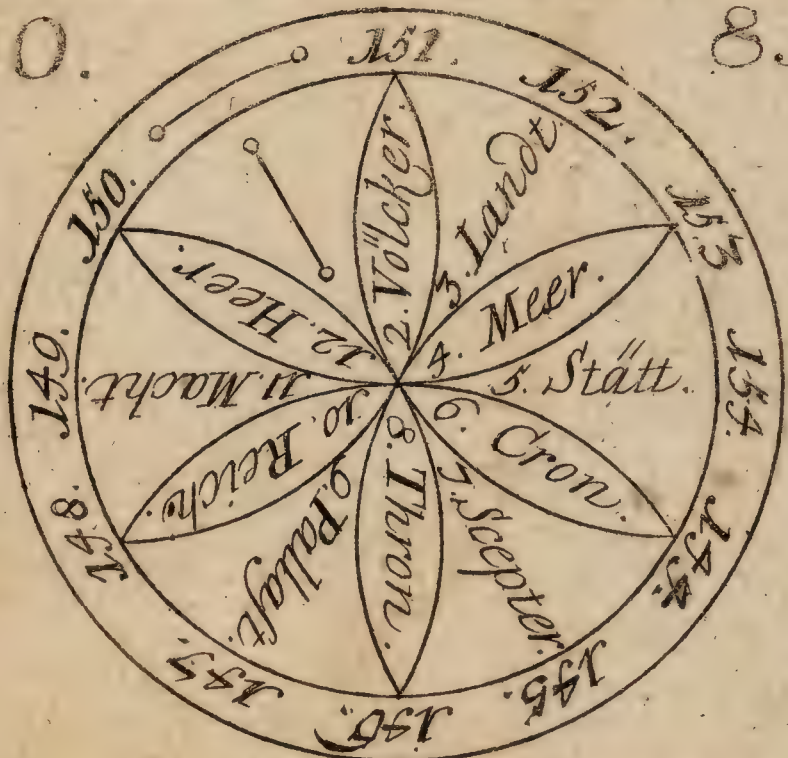 0.
8.
151.
152.
153
154.
144.
145.
146.
147.
148.
149.
150.
2. Völcker.
3. Landt.
4. Meer.
5. Stätt.
6. Cron.
7. Scepter.
8. Thron.
9. Pallaſt.
10. Reich.
11. Macht.
12. Heer.